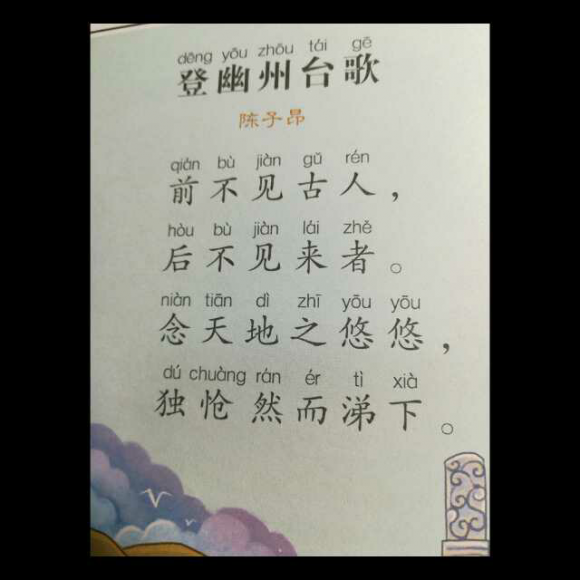 dēng yōu zhōu tái gē
登幽州台歌
陈子昂
qián bù jiàn gǔ rén
前不见古人，
hòu bù jiàn lái zhě
后不见来者。
niàn tiān dì zhī yōu yōu
念天地之悠悠，
dú chuàng rán ér tì xià
独怆然而涕下。